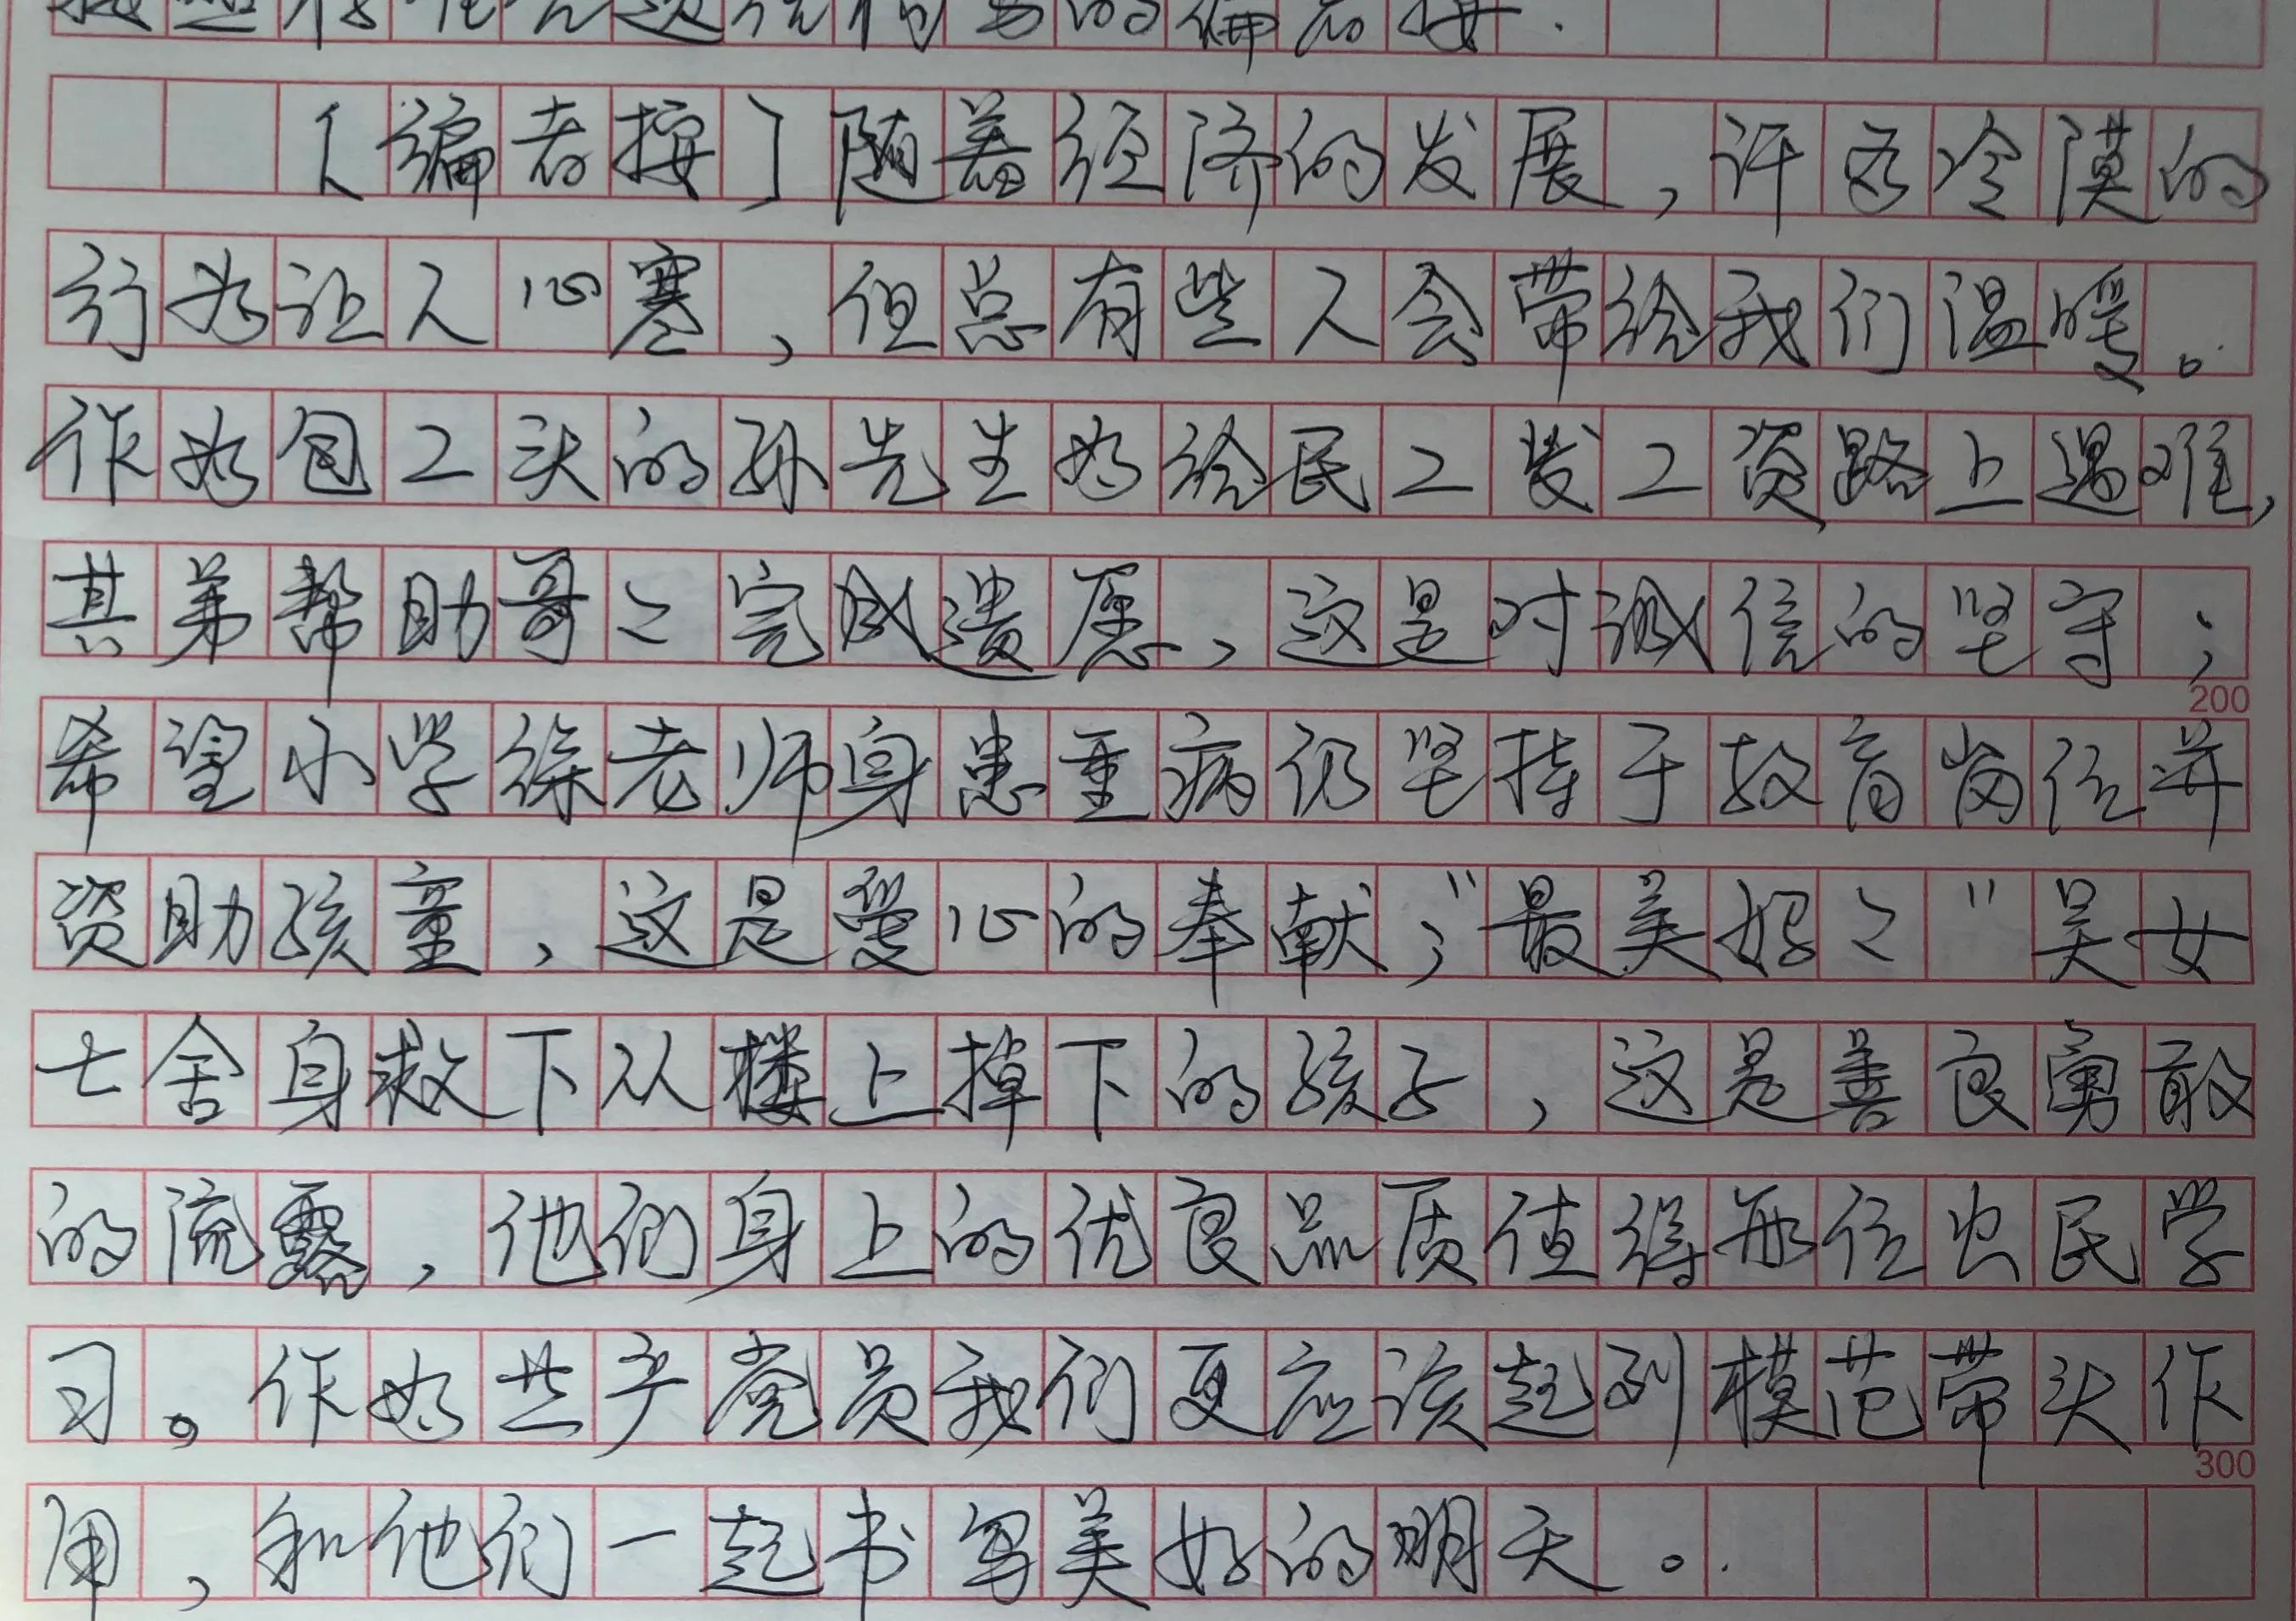 的编者按.
[编者按]随着经济的发展,许多冷漠的
行为让人心寒,但总有些人会带给我们温暖。
作为包工头的孙先生为给民工发工资路上遇难,
其弟帮助哥々完成遗愿,这是对诚信的坚守;
希望小学徐老师身患重病仍坚持于教育岗位并
资助孩童,这是爱心的奉献;"最美妈々"吴女
士舍身救下从楼上掉下的孩子,这是善良勇敢
的流露,他们身上的优良品质值得每位公民学
习。作为共产党员我们更应该起到模范带头作
用,和他们一起书写美好的明天。
200
300